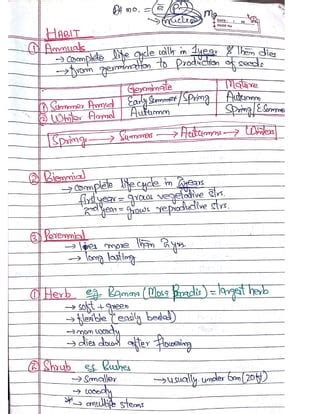 HABIT
① Annuals
→ complete life cycle with in 1 year & then dies
→ from germination to production of seeds
Germinate Mature
① Summer Annual Early Summer/Spring Autumn
② Winter Annual Autumn Spring/E.Summer
Spring → Summer → Autumn → Winter
② Biennial
→ complete life cycle in 2 years
first year = grows vegetative strs.
2nd year = grows reproductive strs.
③ Perennial
→ lives more than 2 yrs.
→ long lasting
① Herb eg. Banana (Musa Paradis) = largest herb
→ soft + green
→ flexible (easily bended)
→ non woody
→ dies down after flowering
② Shrub eg Bushes
→ Smaller → usually under 6m (20ft)
→ woody
*→ multiple stems